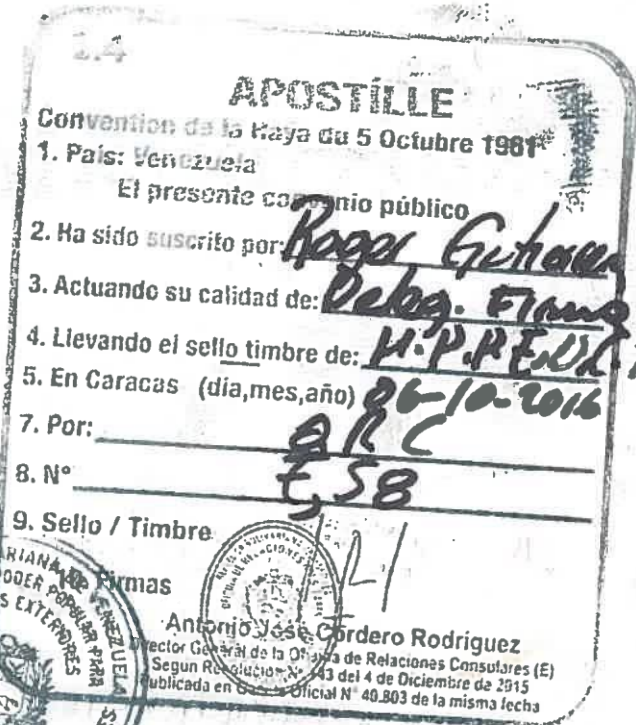 APOSTILLE
Convention de la Haya du 5 Octubre 1961
1. País: Venezuela
El presente convenio público
2. Ha sido suscrito por: Roger Gutierrez
3. Actuando su calidad de: Deleg. Firma
4. Llevando el sello timbre de:
5. En Caracas (dia,mes,año) 06-10-2016
7. Por:
8. N° 58
9. Sello / Timbre
Firmas
Antonio José Cordero Rodriguez
Director General de la Oficina de Relaciones Consulares (E)
Segun Resolución N° 143 del 4 de Diciembre de 2015
Publicada en Gaceta Oficial N° 40.803 de la misma fecha